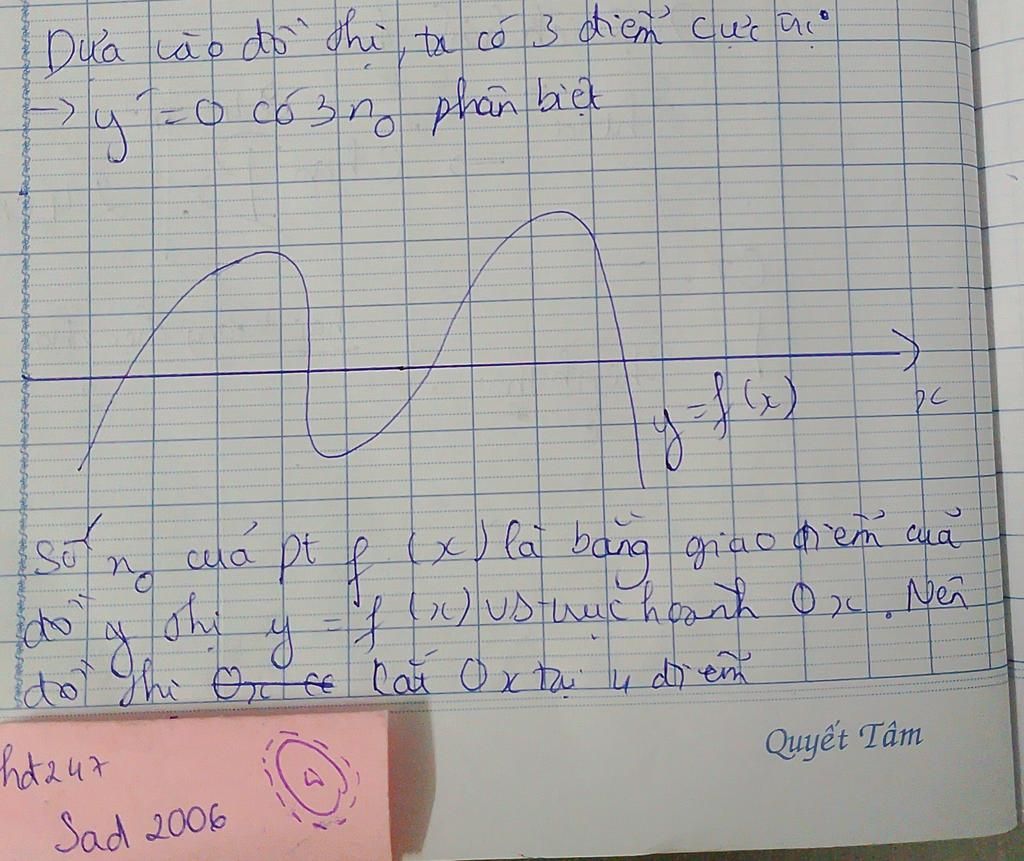 Dựa vào đồ thị, ta có 3 điểm cực trị
→ y' = 0 có 3 n₀ phân biệt
y = f(x)
x
Số n₀ của pt f(x) là bằng giao điểm của
đồ y thị y = f(x) vs trục hoành Ox. Nên
đồ thị cắt Ox tại 4 điểm
Quyết Tâm
hd247
Sad 2006